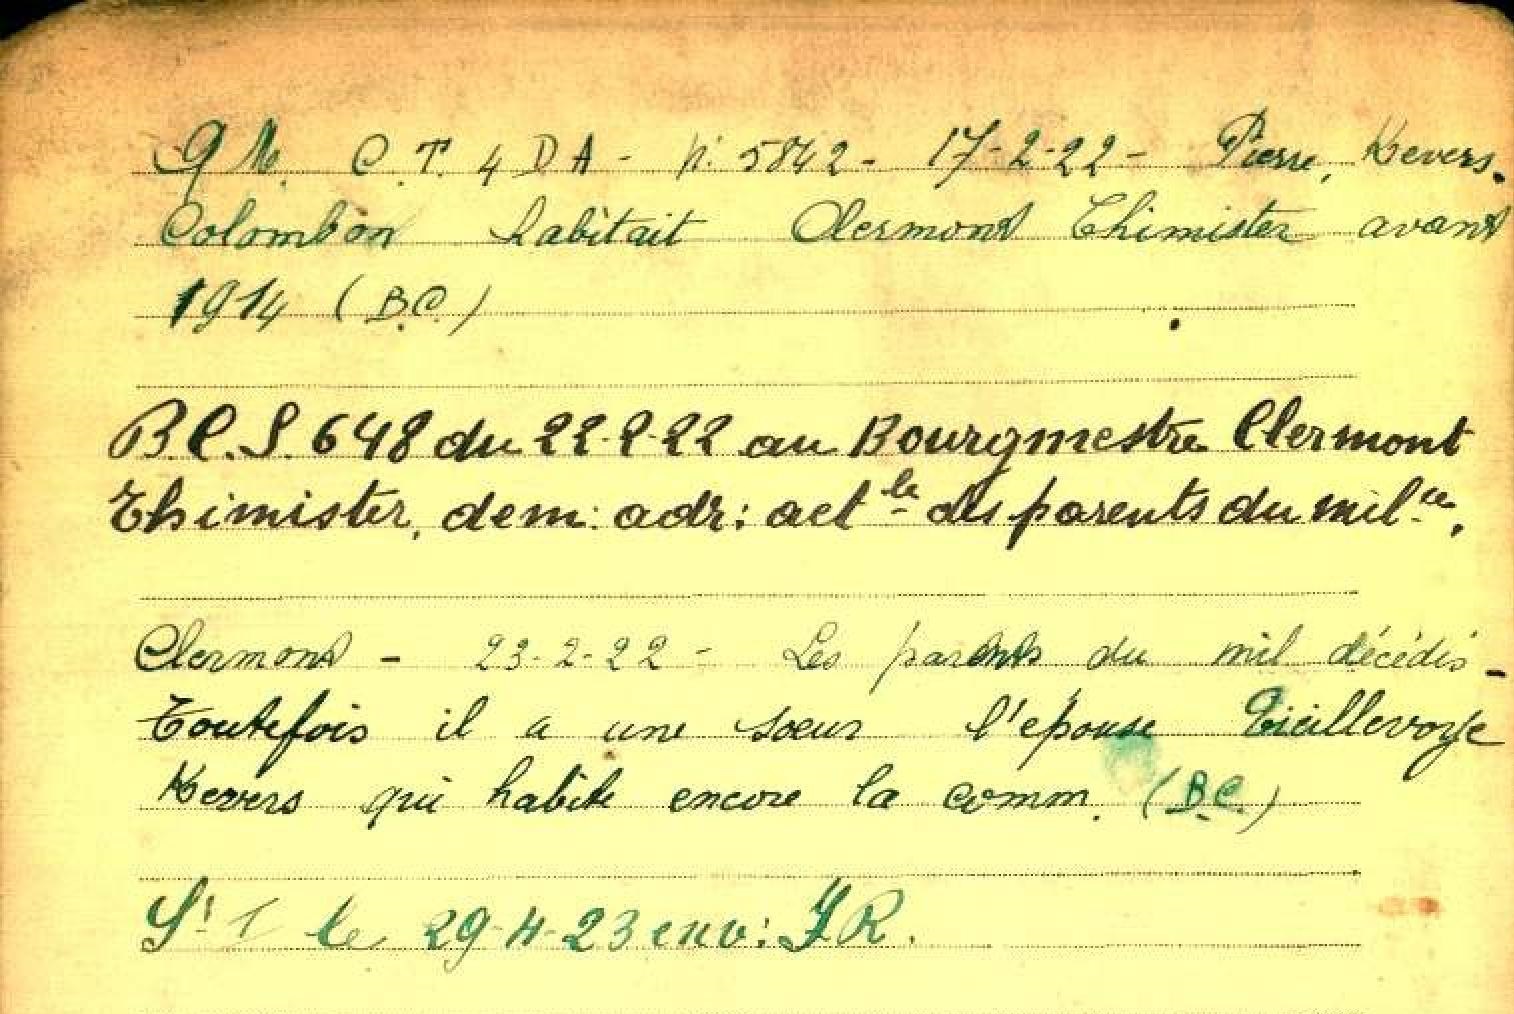 QM. C.T. 4 D A - N. 5842 - 17-2-22 - Pierre, Kevers.
Colombon habitait Clermont Thimister avant
1914 (B.C.)
B.C.S. 648 du 22-2-22 au Bourgmestre Clermont
Thimister, dem: adr: act le des parents du mil re.
Clermont - 23-2-22 - Les parents du mil décédés -
Toutefois il a une soeur l'epouse Tieillevoye
Kevers qui habite encore la comm. (B.C.)
le 29-4-23 env: JR.